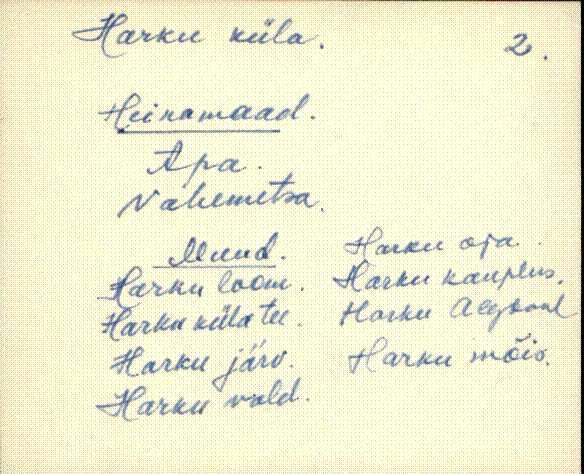 Harku küla.
2.
Heinamaad.
Apa.
Vahemetsa.
Muud.
Harku loom.
Harku küla tee.
Harku järv.
Harku vald.
Harku oja.
Harku kauplus.
Harku Algkool
Harku mõis.